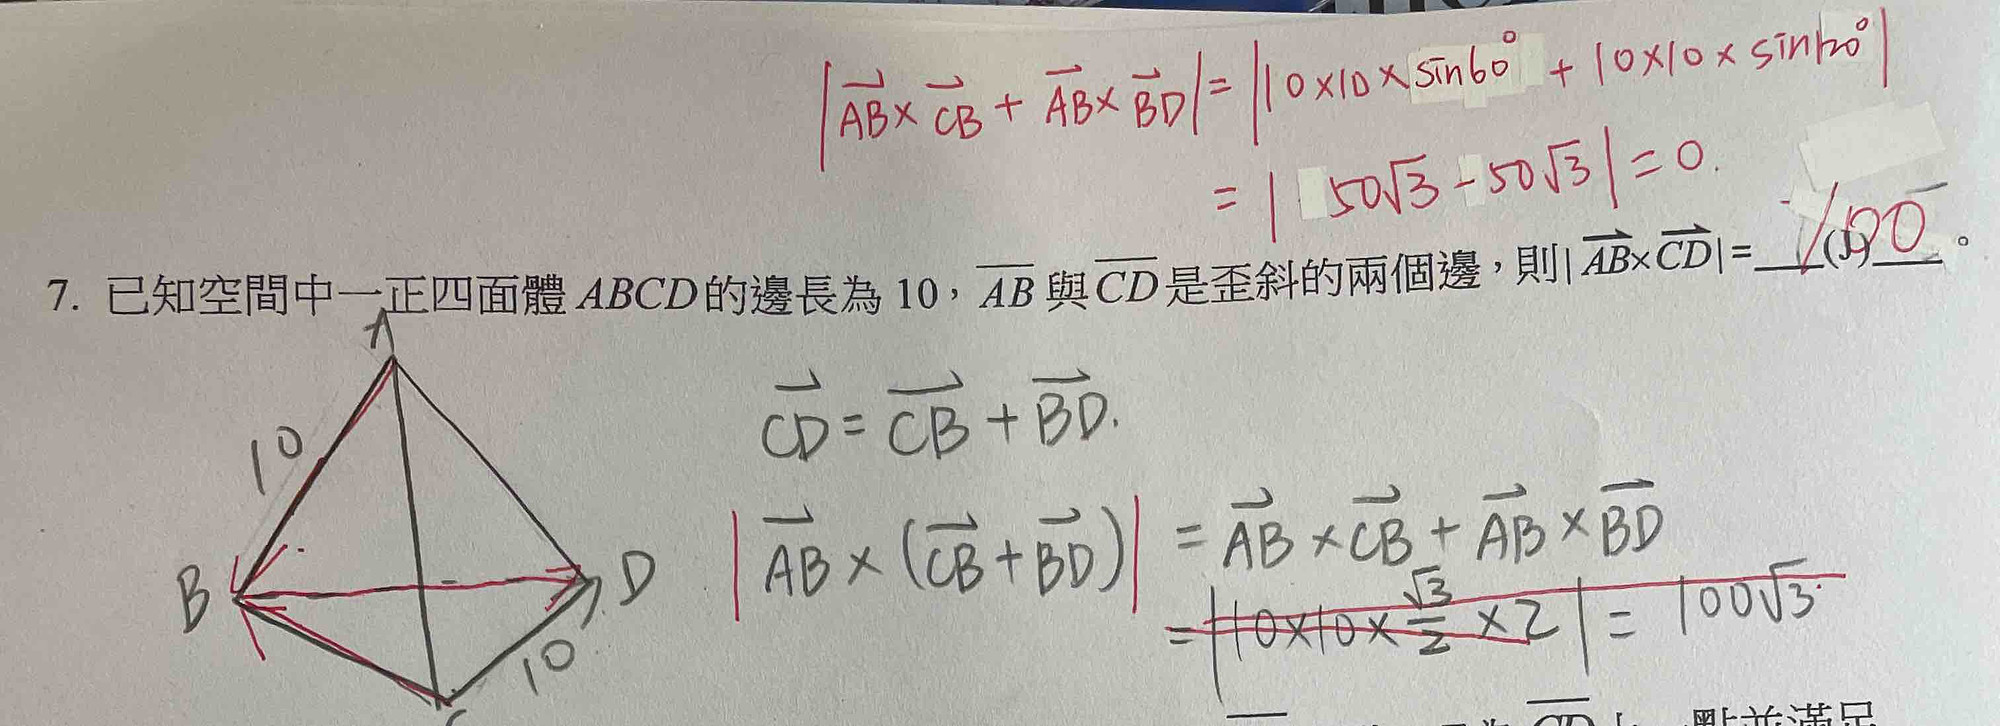 |AB×CB + AB×BD| = |10×10×sin60° + 10×10×sin120°|
= | 50√3 - 50√3 | = 0.
7. 已知空間中一正四面體 ABCD 的邊長為 10，AB 與 CD 是歪斜的兩個邊，則| AB×CD |= (J) 100 。
A
10
CD = CB + BD.
B
D
|AB × (CB + BD)| = AB × CB + AB × BD
10
= |10×10×√3/2 ×2| = 100√3.
C